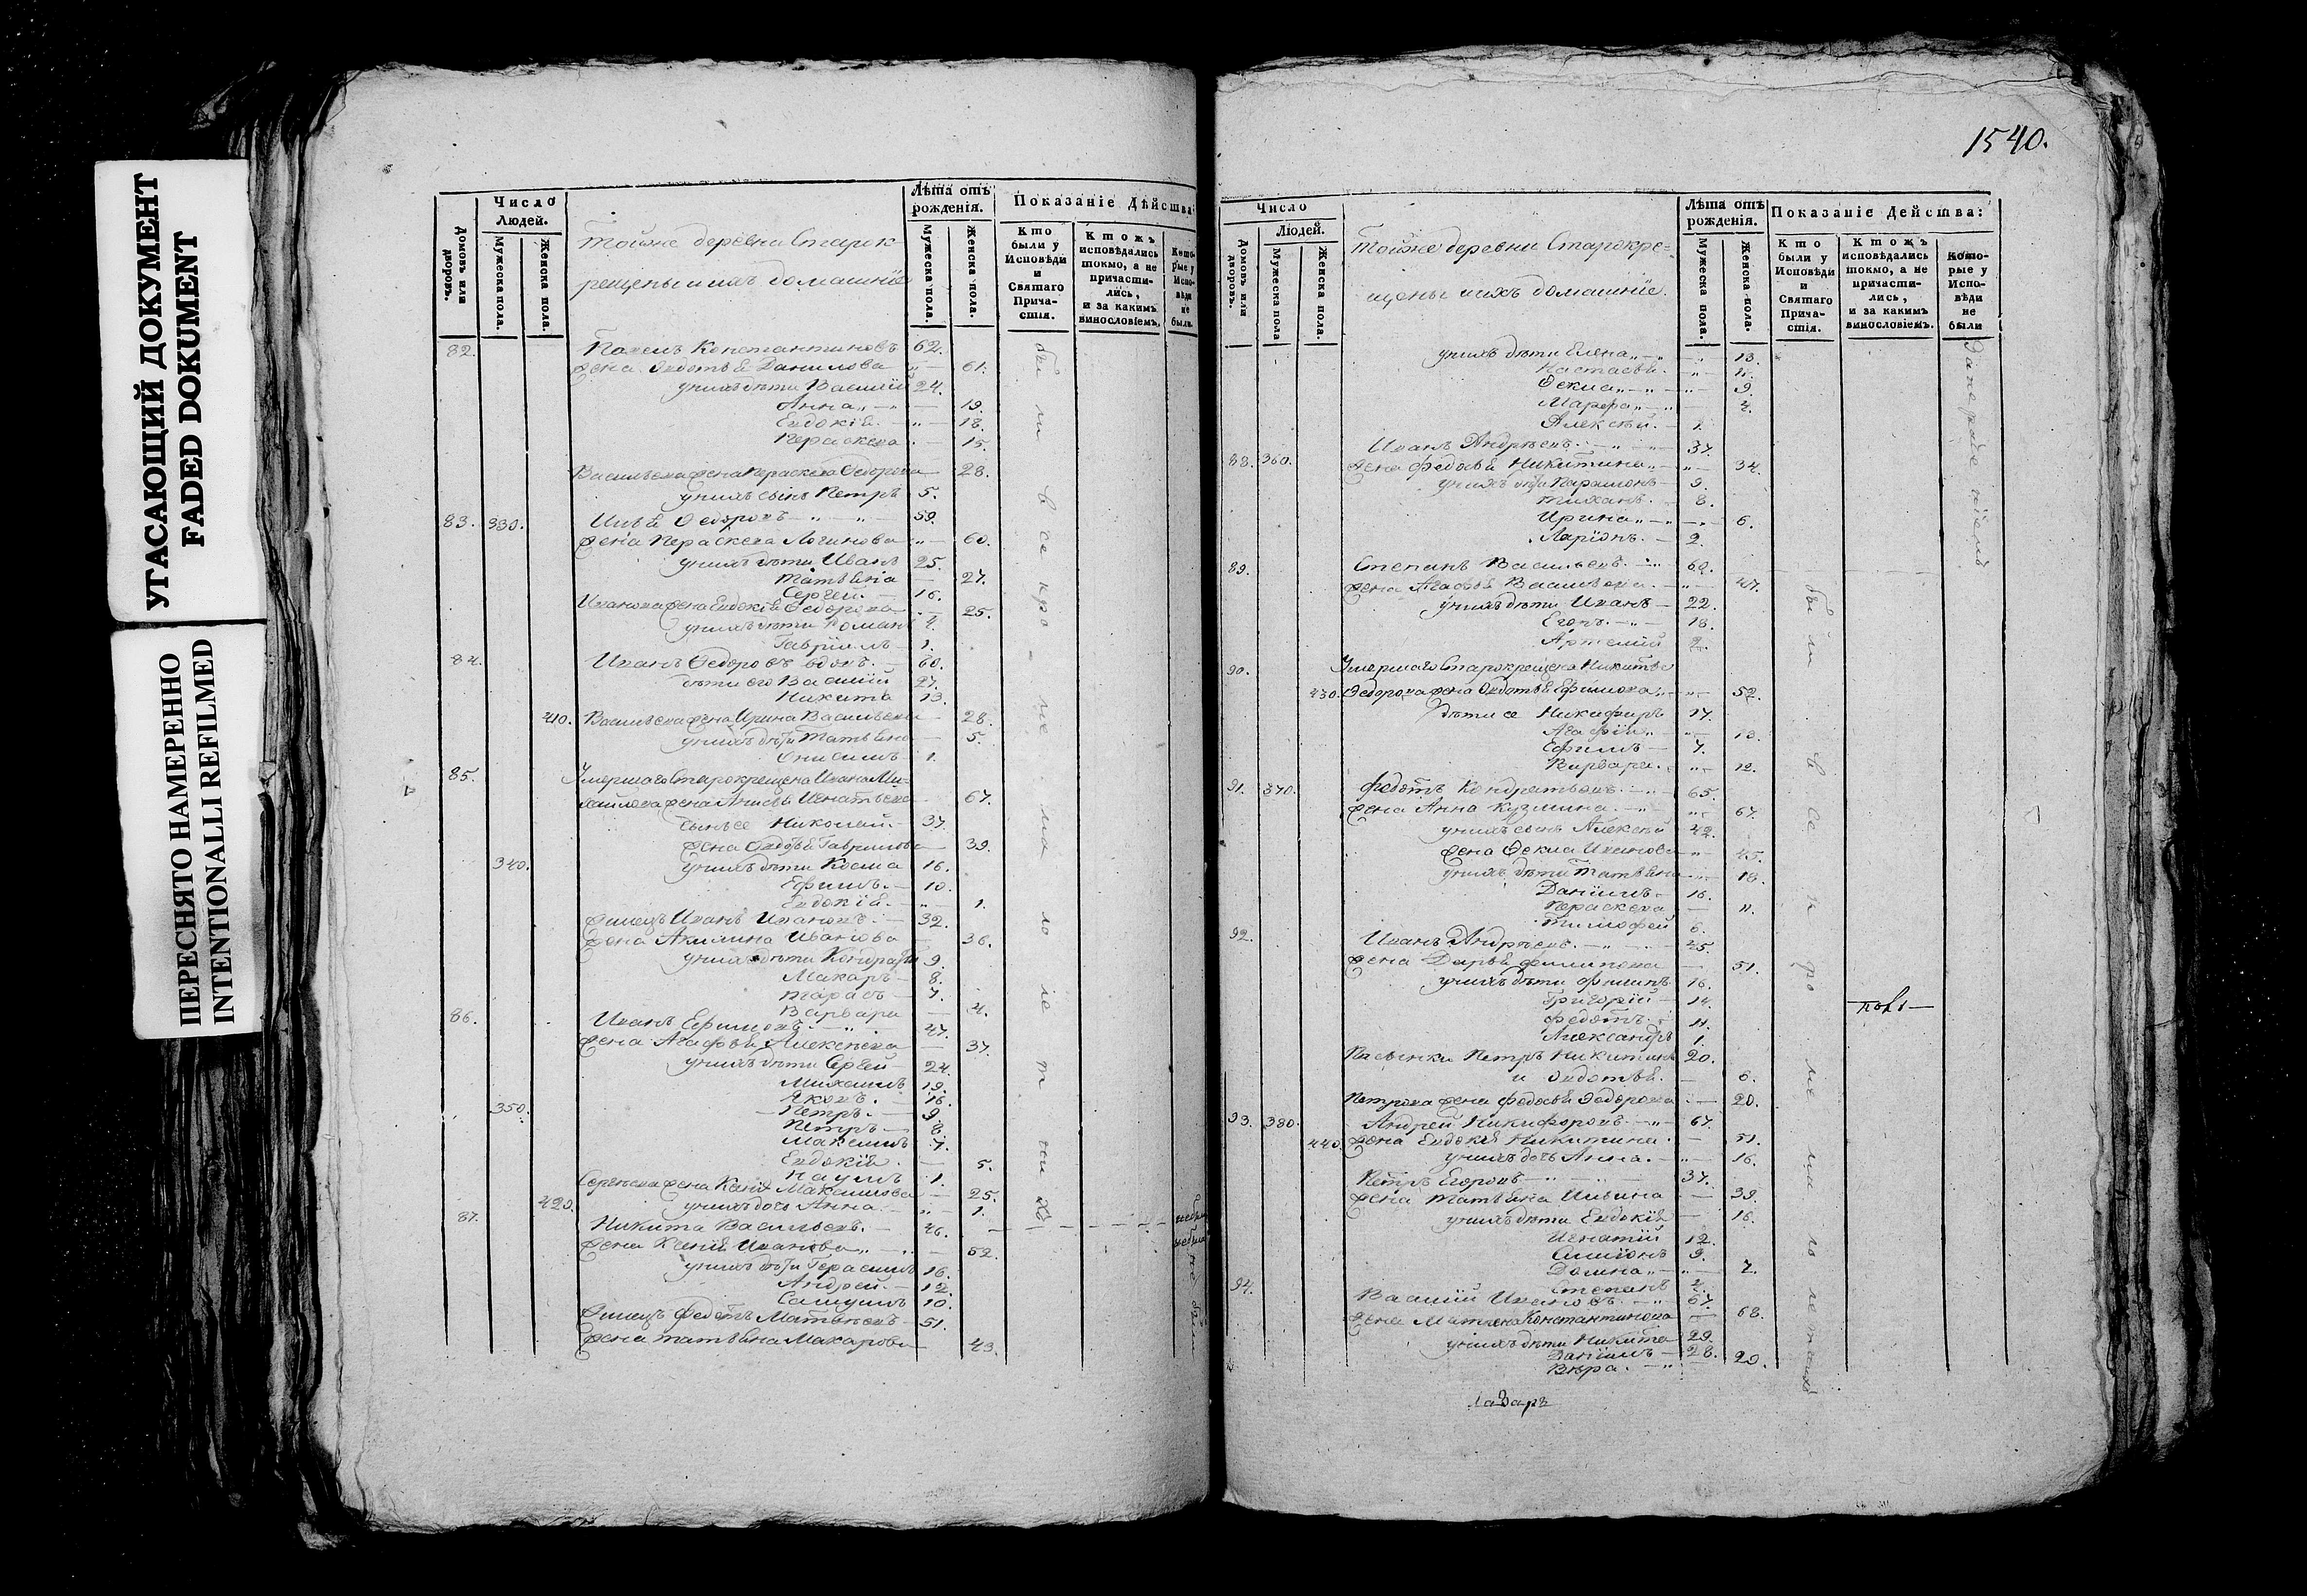 УГАСАЮЩИЙ ДОКУМЕНТ
FADED DOKUMENT
ПЕРЕСНЯТО НАМЕРЕННО
INTENTIONALLI REFILMED
Число Людей.
Лѣта отъ рожденія.
Показаніе Дѣйства
Домовъ или дворовъ.
Мужеска пола.
Женска пола.
Тойже деревни Старок-
рещены и ихъ домашніе
Мужеска пола.
Женска пола.
Кто были у Исповѣди и Святаго Причастія.
Ктожъ исповѣдались токмо, а не причастились, и за какимъ винословіемъ.
Которые у Исповѣди не были.
82. Павелъ Константиновъ 62.
жена Авдотья Данилова 61.
у нихъ дѣти Василій 24.
Анна 19.
Евдокія 18.
Пераскева 15.
Васильева жена Пераскева Федорова 28.
у нихъ сынъ Петръ 5.
83. 330. Илья Федоровъ 59.
жена Пераскева Логинова 60.
у нихъ дѣти Иванъ 25.
Татьяна 27.
Сергей 16.
Иванова жена Евдокія Федорова 25.
у нихъ дѣти Романъ 4.
Гавріилъ 1.
84. Иванъ Федоровъ вдовъ 60.
дѣти его Василій 27.
Никита 13.
410. Васильева жена Ирина Васильева 28.
у нихъ дѣти Татьяна 5.
Онисимъ 1.
85. Умершаго Старокрещена Ивана Ми-
хайлова жена Анисья Игнатьева 67.
сынъ ее Николай 37.
жена Авдотья Гаврилова 39.
340. у нихъ дѣти Косма 16.
Ефимъ 10.
Евдокія 1.
Иванъ Ивановъ 32.
жена Акилина Иванова 36.
у нихъ дѣти Кондратій 9.
Макаръ 8.
Тарасъ 7.
Варвара 4.
86. Иванъ Ефимовъ 47.
жена Агафья Алексеева 37.
у нихъ дѣти Сергей 24.
Михаилъ 19.
Яковъ 16.
350. Петръ 9.
Петръ 8.
Максимъ 7.
Евдокія 5.
Наумъ 1.
Сергеева жена Максимова 25.
420. у нихъ дочь Анна 1.
87. Никита Васильевъ 46.
жена Ксенія Иванова 52.
у нихъ дѣти Герасимъ 16.
Андрей 12.
Самуилъ 10.
Федотъ Матвѣевъ 51.
жена Татьяна Макарова 43.
были все кромѣ малолетнихъ
не были
1540.
Число Людей.
Лѣта отъ рожденія.
Показаніе Действа:
Домовъ или дворовъ.
Мужеска пола
Женска пола.
Тойже деревни Старокре-
щены и ихъ домашніе.
Мужеска пола.
Женска пола.
Кто были у Исповѣди и Святаго Причастія.
Ктожъ исповѣдались токмо, а не причастились, и за какимъ винословіемъ.
Которые у Исповѣди не были
у нихъ дѣти Елена 13.
Настасья 11.
Фекла 9.
Марфа 4.
Алексѣй 1.
Иванъ Андреевъ 37.
88. 360. жена Федосья Никитина 34.
у нихъ дѣти Парамонъ 9.
Тиханъ 8.
Ирина 6.
Ларіонъ 2.
89. Степанъ Васильевъ 62.
жена Агафья Васильева 47.
у нихъ дѣти Иванъ 22.
Егоръ 18.
Артемій 2.
90. Умершаго Старокрещена Никиты
430. Федорова жена Авдотья Ефимова 52.
дѣти ее Никифоръ 17.
Агафія 13.
Ефимъ 7.
Варвара 12.
91. 370. Федотъ Кондратьевъ 65.
жена Анна Кузмина 67.
у нихъ сынъ Алексѣй 42.
жена Фекла Иванова 45.
у нихъ дѣти Татьяна 18.
Даніилъ 16.
Пераскева 11.
Тимофей 6.
92. Иванъ Андреевъ 45.
жена Дарья Филипова 51.
у нихъ дѣти Филипъ 16.
Григорій 14.
Федотъ 11.
Александръ 1.
Пасынки Петръ Никитинъ 20.
и Авдотья 6.
Петрова жена Федосья Федорова 20.
93. 380. Андрей Никифоровъ 67.
440. жена Евдокія Никитина 51.
у нихъ дочь Анна 16.
Петръ Егоровъ 37.
жена Татьяна Ильина 39.
у нихъ дѣти Евдокія 16.
Игнатій 12.
Симіонъ 9.
Домна 7.
Степанъ 2.
94. Василій Ивановъ 67.
жена Матрена Константинова 68.
у нихъ дѣти Никита 29.
Даніилъ 28.
Вѣра 20.
были все кромѣ малолетныхъ
Лазарь